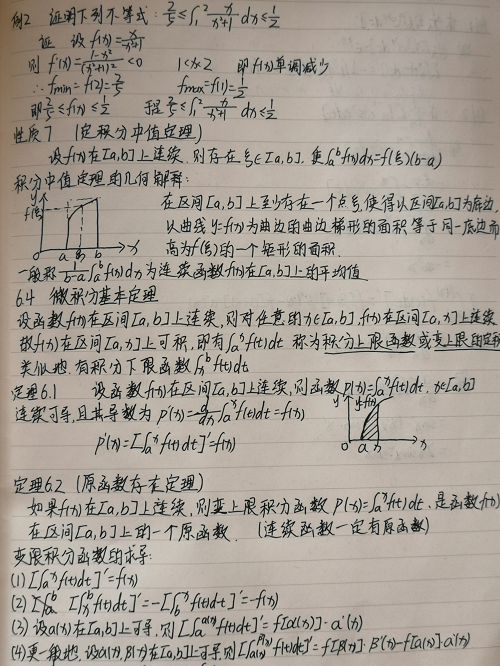 例2 证明下列不等式: 2/5 ≤ ∫₁² x/(x²+1) dx ≤ 1/2
证 设f(x)= x/(x²+1)
则 f'(x)= (1-x²)/(x²+1)² <0 1<x<2 即f(x)单调减少
∴ fmin=f(2)=2/5 fmax=f(1)=1/2
即 2/5 ≤ f(x) ≤ 1/2 于是 2/5 ≤ ∫₁² x/(x²+1) dx ≤ 1/2
性质7 (定积分中值定理)
设f(x)在[a,b]上连续,则存在ξ∈[a,b],使∫ₐᵇf(x)dx=f(ξ)(b-a)
积分中值定理的几何解释:
y
f(ξ)
0 a ξ b x
在区间[a,b]上至少存在一个点ξ,使得以区间[a,b]为底边,
以曲线y=f(x)为曲边的曲边梯形的面积等于同一底边而
高为f(ξ)的一个矩形的面积.
一般称 1/(b-a) ∫ₐᵇf(x)dx为连续函数f(x)在[a,b]上的平均值
6.4 微积分基本定理
设函数f(x)在区间[a,b]上连续,则对任意的x∈[a,b],f(x)在区间[a,x]上连续
故f(x)在区间[a,x]上可积,即有∫ₐˣf(t)dt 称为积分上限函数或变上限的定积
类似地,有积分下限函数∫ₓᵇf(t)dt
定理6.1 设函数f(x)在区间[a,b]上连续,则函数p(x)=∫ₐˣf(t)dt, x∈[a,b]
连续可导,且其导数为 p'(x)= d/dx ∫ₐˣf(t)dt=f(x)
p'(x)=[∫ₐˣf(t)dt]'=f(x)
y y=f(x)
0 a x x
定理6.2 (原函数存在定理)
如果f(x)在[a,b]上连续,则变上限积分函数 p(x)=∫ₐˣf(t)dt,是函数f(x)
在区间[a,b]上的一个原函数. (连续函数一定有原函数)
变限积分函数的求导:
(1) [∫ₐˣf(t)dt]'=f(x)
(2) [∫ₓᵇf(t)dt]'=-[∫_b^x f(t)dt]'=-f(x)
(3) 设α(x)在[a,b]上可导,则[∫ₐ^α(x) f(t)dt]'=f[α(x)]·α'(x)
(4) 更一般地,设α(x),β(x)在[a,b]上可导,则[∫_α(x)^β(x) f(t)dt]'=f[β(x)]·β'(x)-f[α(x)]·α'(x)